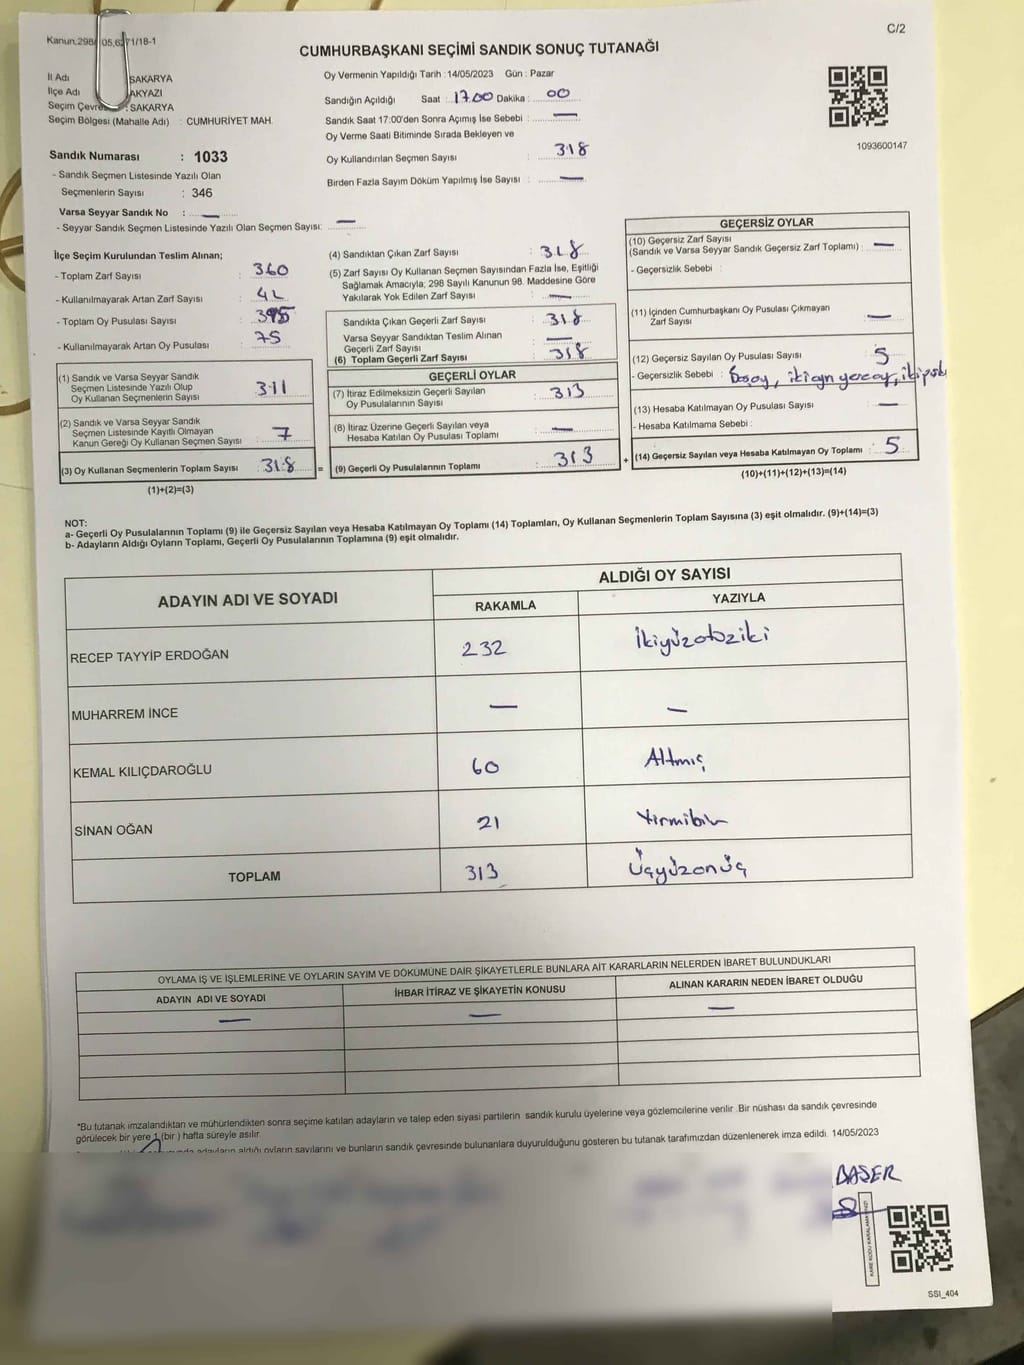 Kanun,298/ 05,6271/18-1
C/2
CUMHURBAŞKANI SEÇİMİ SANDIK SONUÇ TUTANAĞI
İl Adı SAKARYA
İlçe Adı AKYAZI
Seçim Çevre : SAKARYA
Seçim Bölgesi (Mahalle Adı) : CUMHURİYET MAH.
Sandık Numarası : 1033
- Sandık Seçmen Listesinde Yazılı Olan
Seçmenlerin Sayısı : 346
Varsa Seyyar Sandık No : —
- Seyyar Sandık Seçmen Listesinde Yazılı Olan Seçmen Sayısı: —
Oy Vermenin Yapıldığı Tarih : 14/05/2023 Gün : Pazar
Sandığın Açıldığı Saat : 17.00 Dakika : 00
Sandık Saat 17:00'den Sonra Açımış İse Sebebi : —
Oy Verme Saati Bitiminde Sırada Bekleyen ve
Oy Kullandırılan Seçmen Sayısı : 318
Birden Fazla Sayım Döküm Yapılmış İse Sayısı : —
1093600147
İlçe Seçim Kurulundan Teslim Alınan;
- Toplam Zarf Sayısı : 360
- Kullanılmayarak Artan Zarf Sayısı : 42
- Toplam Oy Pusulası Sayısı :
- Kullanılmayarak Artan Oy Pusulası : 75
(1) Sandık ve Varsa Seyyar Sandık
Seçmen Listesinde Yazılı Olup
Oy Kullanan Seçmenlerin Sayısı : 311
(2) Sandık ve Varsa Seyyar Sandık
Seçmen Listesinde Kayıtlı Olmayan
Kanun Gereği Oy Kullanan Seçmen Sayısı : 7
(3) Oy Kullanan Seçmenlerin Toplam Sayısı : 318 =
(1)+(2)=(3)
(4) Sandıktan Çıkan Zarf Sayısı : 318
(5) Zarf Sayısı Oy Kullanan Seçmen Sayısından Fazla İse, Eşitliği
Sağlamak Amacıyla; 298 Sayılı Kanunun 98. Maddesine Göre
Yakılarak Yok Edilen Zarf Sayısı : —
Sandıkta Çıkan Geçerli Zarf Sayısı : 318
Varsa Seyyar Sandıktan Teslim Alınan
Geçerli Zarf Sayısı : —
(6) Toplam Geçerli Zarf Sayısı : 318
GEÇERLİ OYLAR
(7) İtiraz Edilmeksizin Geçerli Sayılan
Oy Pusulalarının Sayısı : 313
(8) İtiraz Üzerine Geçerli Sayılan veya
Hesaba Katılan Oy Pusulası Toplamı : —
(9) Geçerli Oy Pusulalarının Toplamı : 313 +
GEÇERSİZ OYLAR
(10) Geçersiz Zarf Sayısı
(Sandık ve Varsa Seyyar Sandık Geçersiz Zarf Toplamı) : —
- Geçersizlik Sebebi :
(11) İçinden Cumhurbaşkanı Oy Pusulası Çıkmayan
Zarf Sayısı : —
(12) Geçersiz Sayılan Oy Pusulası Sayısı : 5
- Geçersizlik Sebebi : Boşoy, iki ayrı yere oy,
(13) Hesaba Katılmayan Oy Pusulası Sayısı : —
- Hesaba Katılmama Sebebi :
(14) Geçersiz Sayılan veya Hesaba Katılmayan Oy Toplamı : 5
(10)+(11)+(12)+(13)=(14)
NOT:
a- Geçerli Oy Pusulalarının Toplamı (9) ile Geçersiz Sayılan veya Hesaba Katılmayan Oy Toplamı (14) Toplamları, Oy Kullanan Seçmenlerin Toplam Sayısına (3) eşit olmalıdır. (9)+(14)=(3)
b- Adayların Aldığı Oyların Toplamı, Geçerli Oy Pusulalarının Toplamına (9) eşit olmalıdır.
ADAYIN ADI VE SOYADI
ALDIĞI OY SAYISI
RAKAMLA YAZIYLA
RECEP TAYYİP ERDOĞAN 232 İkiyüzotuziki
MUHARREM İNCE — —
KEMAL KILIÇDAROĞLU 60 Altmış
SİNAN OĞAN 21 Yirmibir
TOPLAM 313 Üçyüzonüç
OYLAMA İŞ VE İŞLEMLERİNE VE OYLARIN SAYIM VE DÖKÜMÜNE DAİR ŞİKAYETLERLE BUNLARA AİT KARARLARIN NELERDEN İBARET BULUNDUKLARI
ADAYIN ADI VE SOYADI İHBAR İTİRAZ VE ŞİKAYETİN KONUSU ALINAN KARARIN NEDEN İBARET OLDUĞU
— — —
*Bu tutanak imzalandıktan ve mühürlendikten sonra seçime katılan adayların ve talep eden siyasi partilerin sandık kurulu üyelerine veya gözlemcilerine verilir .Bir nüshası da sandık çevresinde
görülecek bir yere 1 (bir ) hafta süreyle asılır.
adayların aldığı oyların sayılarını ve bunların sandık çevresinde bulunanlara duyurulduğunu gösteren bu tutanak tarafımızdan düzenlenerek imza edildi. 14/05/2023
BAŞER
KARE KODU KARALAMAYINIZ!
SSİ_404